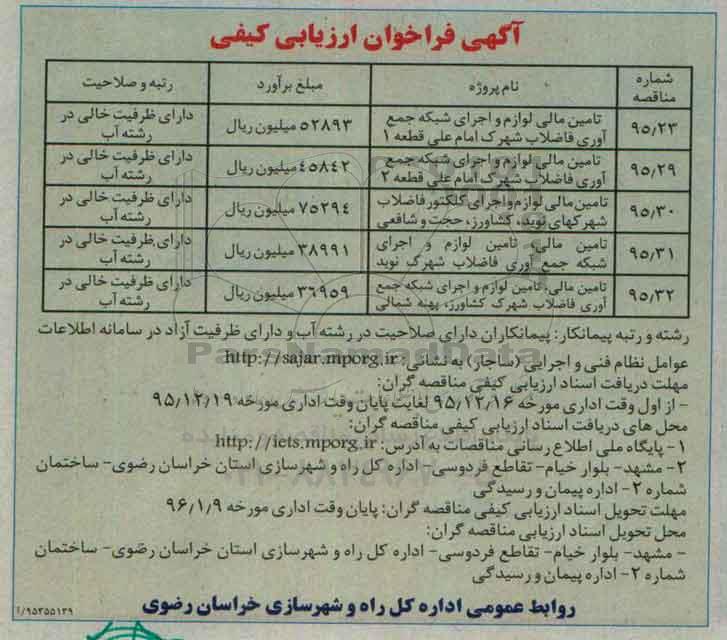 آگهی فراخوان ارزیابی کیفی
شماره مناقصه
نام پروژه
مبلغ برآورد
رتبه و صلاحیت
۹۵/۲۳
تامین مالی لوازم و اجرای شبکه جمع
آوری فاضلاب شهرک امام علی قطعه ۱
۵۲۸۹۳ میلیون ریال
دارای ظرفیت خالی در
رشته آب
۹۵/۲۹
تامین مالی لوازم و اجرای شبکه جمع
آوری فاضلاب شهرک امام علی قطعه ۲
۴۵۸۴۲ میلیون ریال
دارای ظرفیت خالی در
رشته آب
۹۵/۳۰
تامین مالی لوازم و اجرای کلکتور فاضلاب
شهرکهای نوید، کشاورز، حجت و شافعی
۷۵۲۹۴ میلیون ریال
دارای ظرفیت خالی در
رشته آب
۹۵/۳۱
تامین مالی، تامین لوازم و اجرای
شبکه جمع آوری فاضلاب شهرک نوید
۳۸۹۹۱ میلیون ریال
دارای ظرفیت خالی در
رشته آب
۹۵/۳۲
تامین مالی، تامین لوازم و اجرای شبکه جمع
آوری فاضلاب شهرک کشاورز، پهنه شمالی
۳۶۹۵۹ میلیون ریال
دارای ظرفیت خالی در
رشته آب
رشته و رتبه پیمانکار: پیمانکاران دارای صلاحیت در رشته آب و دارای ظرفیت آزاد در سامانه اطلاعات
عوامل نظام فنی و اجرایی (ساجار) به نشانی: http://sajar.mporg.ir
مهلت دریافت اسناد ارزیابی کیفی مناقصه گران:
- از اول وقت اداری مورخه ۹۵/۱۲/۱۶ لغایت پایان وقت اداری مورخه ۹۵/۱۲/۱۹
محل های دریافت اسناد ارزیابی کیفی مناقصه گران:
۱- پایگاه ملی اطلاع رسانی مناقصات به آدرس: http://iets.mporg.ir
۲- مشهد- بلوار خیام- تقاطع فردوسی- اداره کل راه و شهرسازی استان خراسان رضوی- ساختمان
شماره ۲- اداره پیمان و رسیدگی
مهلت تحویل اسناد ارزیابی کیفی مناقصه گران: پایان وقت اداری مورخه ۹۶/۱/۹
محل تحویل اسناد ارزیابی مناقصه گران:
- مشهد- بلوار خیام- تقاطع فردوسی- اداره کل راه و شهرسازی استان خراسان رضوی- ساختمان
شماره ۲- اداره پیمان و رسیدگی
روابط عمومی اداره کل راه و شهرسازی خراسان رضوی
۹۵۲۵۵۱۳۹/آ
ParsNamadData